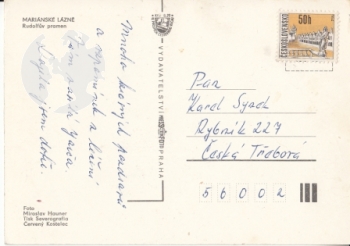 MARIÁNSKÉ LÁZNĚ
Rudolfův pramen
Mnoho krásných pozdravů
a vzpomínek z léčení
Vám zasílá Jana
Foto
Miroslav Hausner
Tisk Severografia
Červený Kostelec
VYDAVATELSTVÍ
PRAHA
ČESKOSLOVENSKO
50h
Pan
Karel Syach
Rybník 227
Česká Třebová
56002